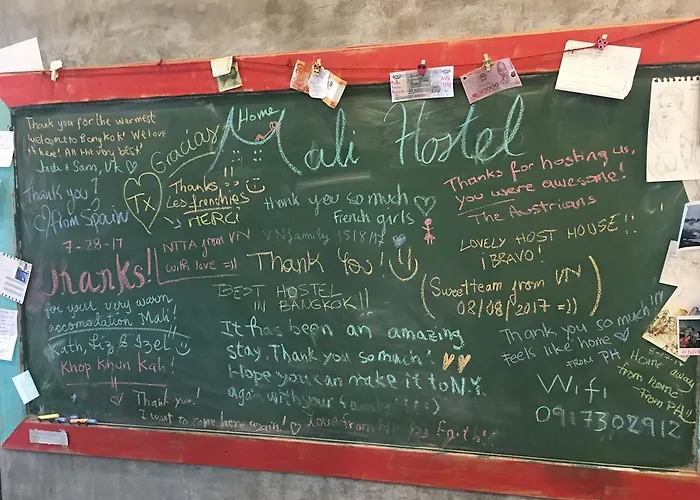 Home
Mali Hostel
Thank you for the warmest
welcome to Bangkok! We love
it here! All the very best!
Jade & Sam, UK
Gracias
Thank you
from Spain
Tx
Thanks!!
Les frenchies
MERCI
7-28-17
Thanks!
for your very warm
accomodation Mali!
Kath, Liz & Izel
Khop Khun Kah!
NTTA from VN
with love =))
VN family 15/8/17
thank you so much
French girls
Thank You!
Thanks for hosting us,
you were awesome!
The Austrians
LOVELY HOST HOUSE!!
¡BRAVO!
(Sweet team from VN
08/08/2017 =))
BEST HOSTEL
IN BANGKOK!!
It has been an amazing
stay. Thank you so much!
Hope you can make it to N.Y.
again with your family
Thank you so much!!!
Feel like home
FROM PH
Thank you!
I want to come here again!
Love from
Wifi
0917302912
Home away
from home
from PAU